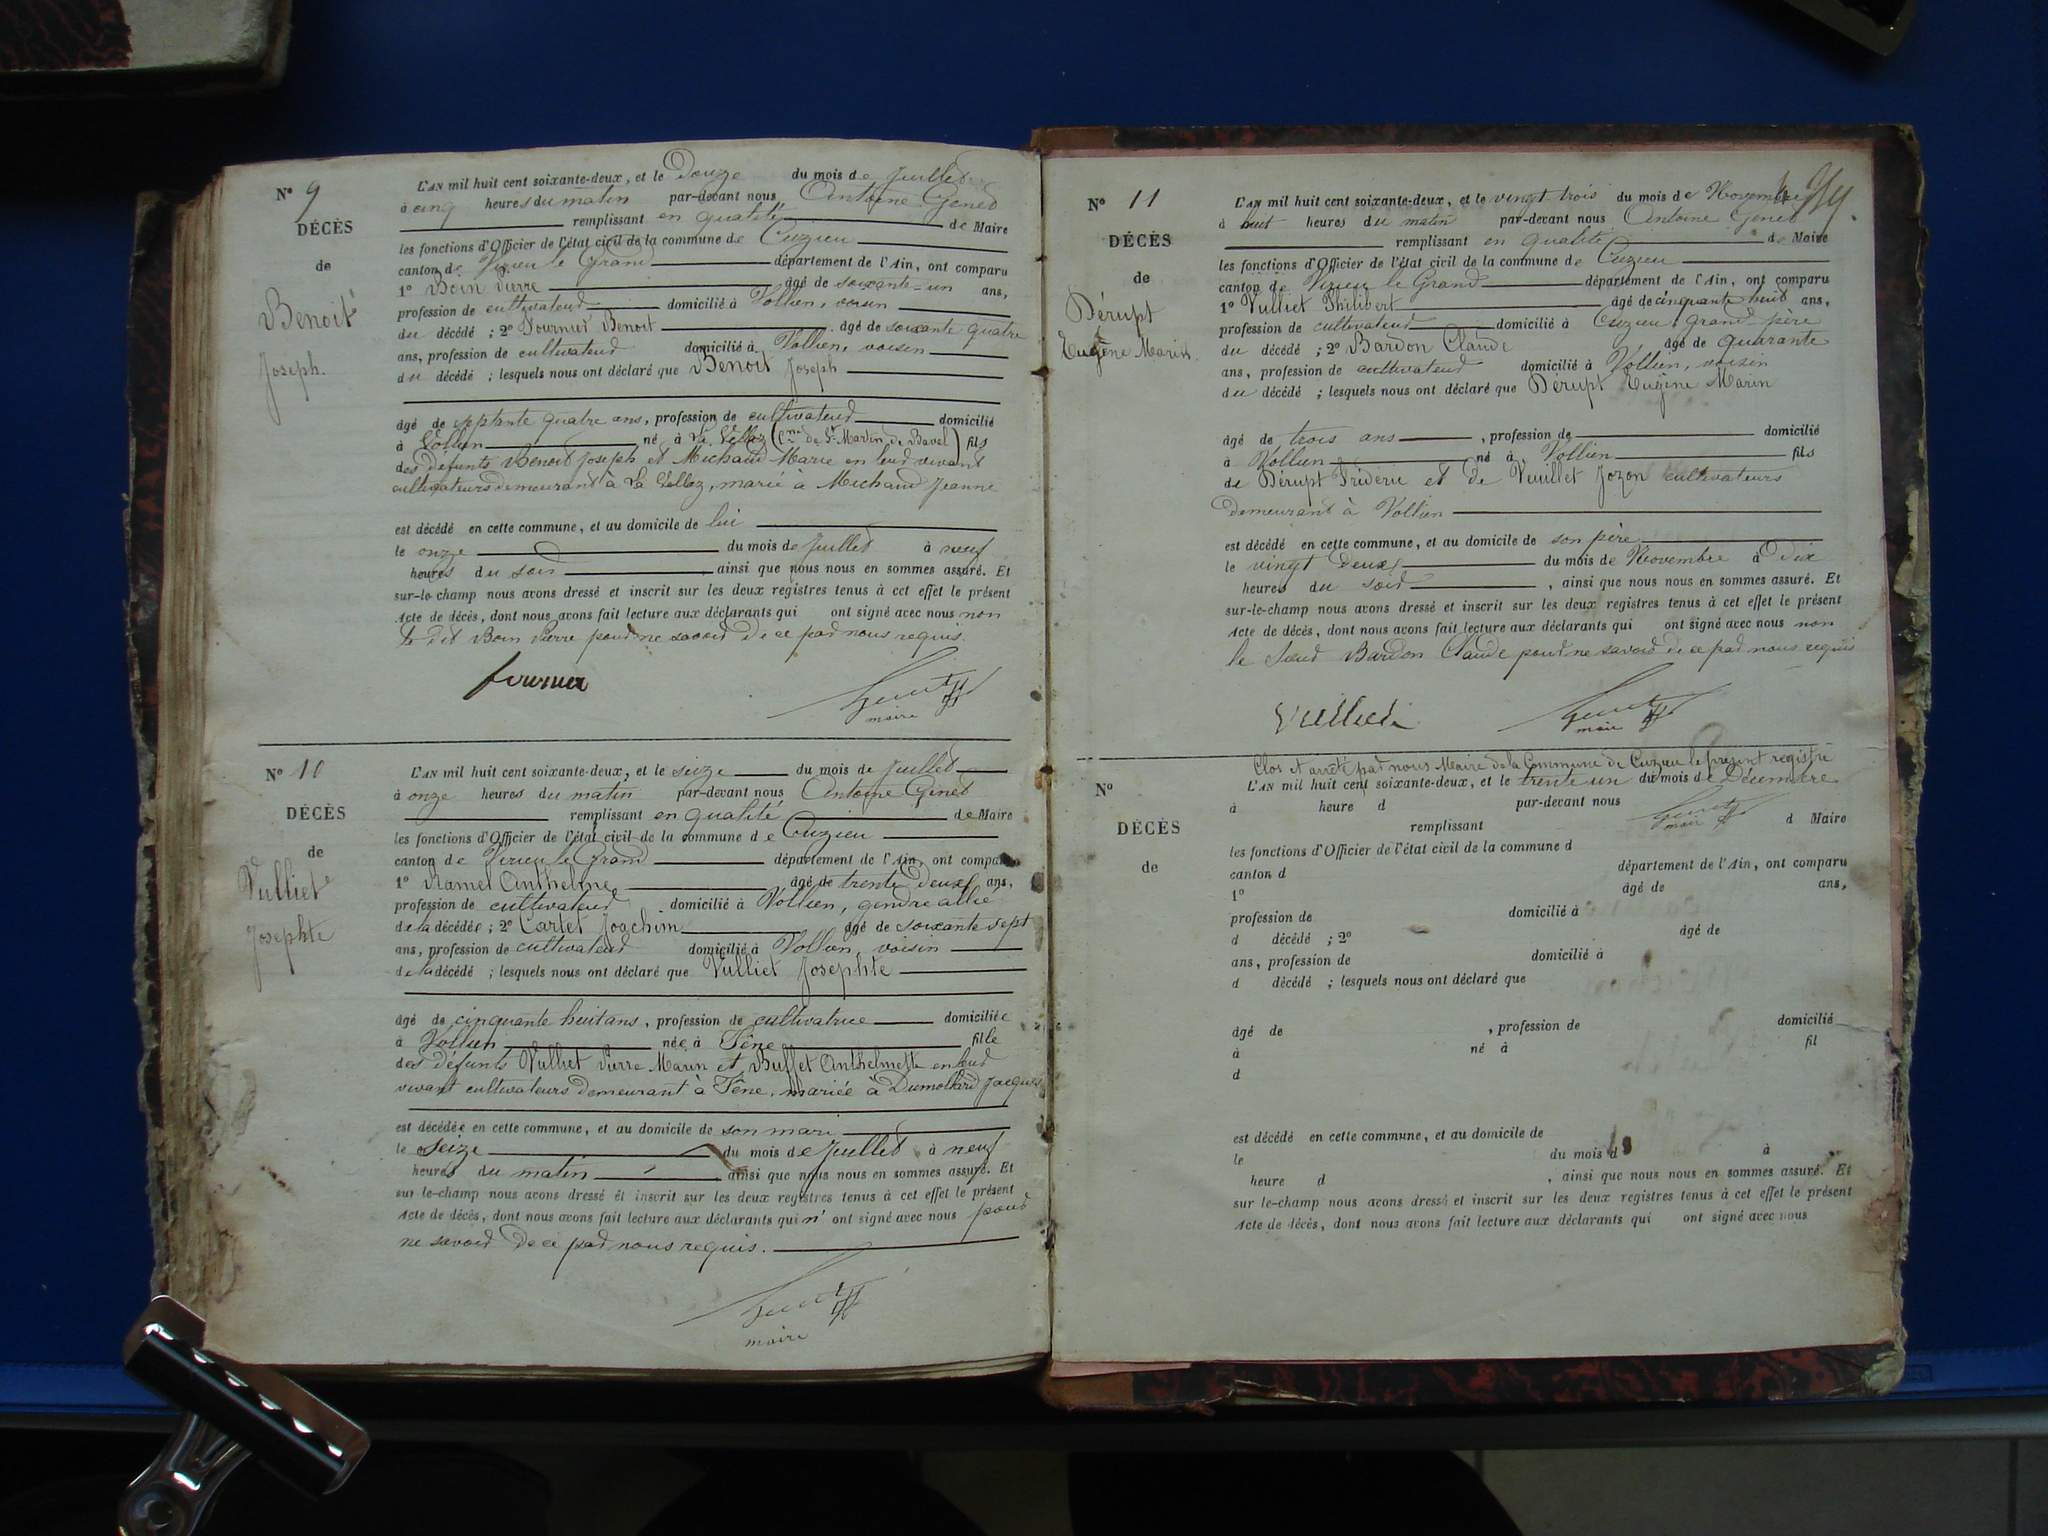 N° 9
DÉCÈS
de
Benoit
Joseph.
L'AN mil huit cent soixante-deux, et le Douze du mois de Juillet
à cinq heures du matin par-devant nous Antoine Genet
remplissant en qualité de Maire
les fonctions d'Officier de l'état civil de la commune de Cuzieu
canton de Virieu le Grand département de l'Ain, ont comparu
1° Boin Pierre âgé de soixante-un ans,
profession de cultivateur domicilié à Vollien, voisin
du décédé ; 2° Fournier Benoit âgé de soixante quatre
ans, profession de cultivateur domicilié à Vollien, voisin
du décédé ; lesquels nous ont déclaré que Benoit Joseph
âgé de septante quatre ans, profession de cultivateur domicilié
à Vollien né à La Vellaz (Cne de St Martin de Bavel) fils
des défunts Benoit Joseph et Michaud Marie en leur vivant
cultivateurs demeurant à La Vellaz, marié à Michaud Jeanne
est décédé en cette commune, et au domicile de lui
le onze du mois de Juillet à neuf
heures du soir ainsi que nous nous en sommes assuré. Et
sur-le-champ nous avons dressé et inscrit sur les deux registres tenus à cet effet le présent
Acte de décès, dont nous avons fait lecture aux déclarants qui ont signé avec nous non
le dit Boin Pierre pour ne savoir de ce par nous requis.
fournier
Genet
maire
N° 10
DÉCÈS
de
Vulliet
Josephte
L'AN mil huit cent soixante-deux, et le seize du mois de Juillet
à onze heures du matin par-devant nous Antoine Genet
remplissant en qualité de Maire
les fonctions d'Officier de l'état civil de la commune de Cuzieu
canton de Virieu le Grand département de l'Ain, ont comparu
1° Ramel Anthelme âgé de trente deux ans,
profession de cultivateur domicilié à Vollien, gendre allié
de la décédée ; 2° Cartet Joachim âgé de soixante sept
ans, profession de cultivateur domicilié à Vollien, voisin
de la décédé ; lesquels nous ont déclaré que Vulliet Josephte
âgé de cinquante huit ans, profession de cultivatrice domiciliée
à Vollien née à Fêne fille
des défunts Vulliet Pierre Marin et Buffet Anthelmette en leur
vivant cultivateurs demeurant à Fêne, mariée à Dumollard Jacques
est décédée en cette commune, et au domicile de son mari
le seize du mois de Juillet à neuf
heures du matin ainsi que nous nous en sommes assuré. Et
sur-le-champ nous avons dressé et inscrit sur les deux registres tenus à cet effet le présent
Acte de décès, dont nous avons fait lecture aux déclarants qui n'ont signé avec nous pour
ne savoir de ce par nous requis.
Genet
maire
N° 11
DÉCÈS
de
Dérupt
Eugène Marin
L'AN mil huit cent soixante-deux, et le vingt trois du mois de Novembre
à huit heures du matin par-devant nous Antoine Genet
remplissant en qualité de Maire
les fonctions d'Officier de l'état civil de la commune de Cuzieu
canton de Virieu le Grand département de l'Ain, ont comparu
1° Vulliet Philibert âgé de cinquante huit ans,
profession de cultivateur domicilié à Cuzieu, grand-père
du décédé ; 2° Bardon Claude âgé de quarante
ans, profession de cultivateur domicilié à Vollien, voisin
du décédé ; lesquels nous ont déclaré que Dérupt Eugène Marin
âgé de trois ans, profession de domicilié
à Vollien né à Vollien fils
de Dérupt Fréderic et de Veuillet Jozon cultivateurs
demeurant à Vollien
est décédé en cette commune, et au domicile de son père
le vingt deux du mois de Novembre à Dix
heures du soir, ainsi que nous nous en sommes assuré. Et
sur-le-champ nous avons dressé et inscrit sur les deux registres tenus à cet effet le présent
Acte de décès, dont nous avons fait lecture aux déclarants qui ont signé avec nous non
le sieur Bardon Claude pour ne savoir de ce par nous requis
Genet
maire
Clos et arrêté par nous Maire de la Commune de Cuzieu le présent registre
N°
DÉCÈS
de
L'AN mil huit cent soixante-deux, et le trente un du mois de Décembre
à heure d par-devant nous
Genet
maire
remplissant d Maire
les fonctions d'Officier de l'état civil de la commune d
canton d département de l'Ain, ont comparu
1° âgé de ans,
profession de domicilié à
d décédé ; 2° âgé de
ans, profession de domicilié à
d décédé ; lesquels nous ont déclaré que
âgé de , profession de domicilié
à né à fil
d
est décédé en cette commune, et au domicile de
le du mois d à
heure d , ainsi que nous nous en sommes assuré. Et
sur-le-champ nous avons dressé et inscrit sur les deux registres tenus à cet effet le présent
Acte de décès, dont nous avons fait lecture aux déclarants qui ont signé avec nous